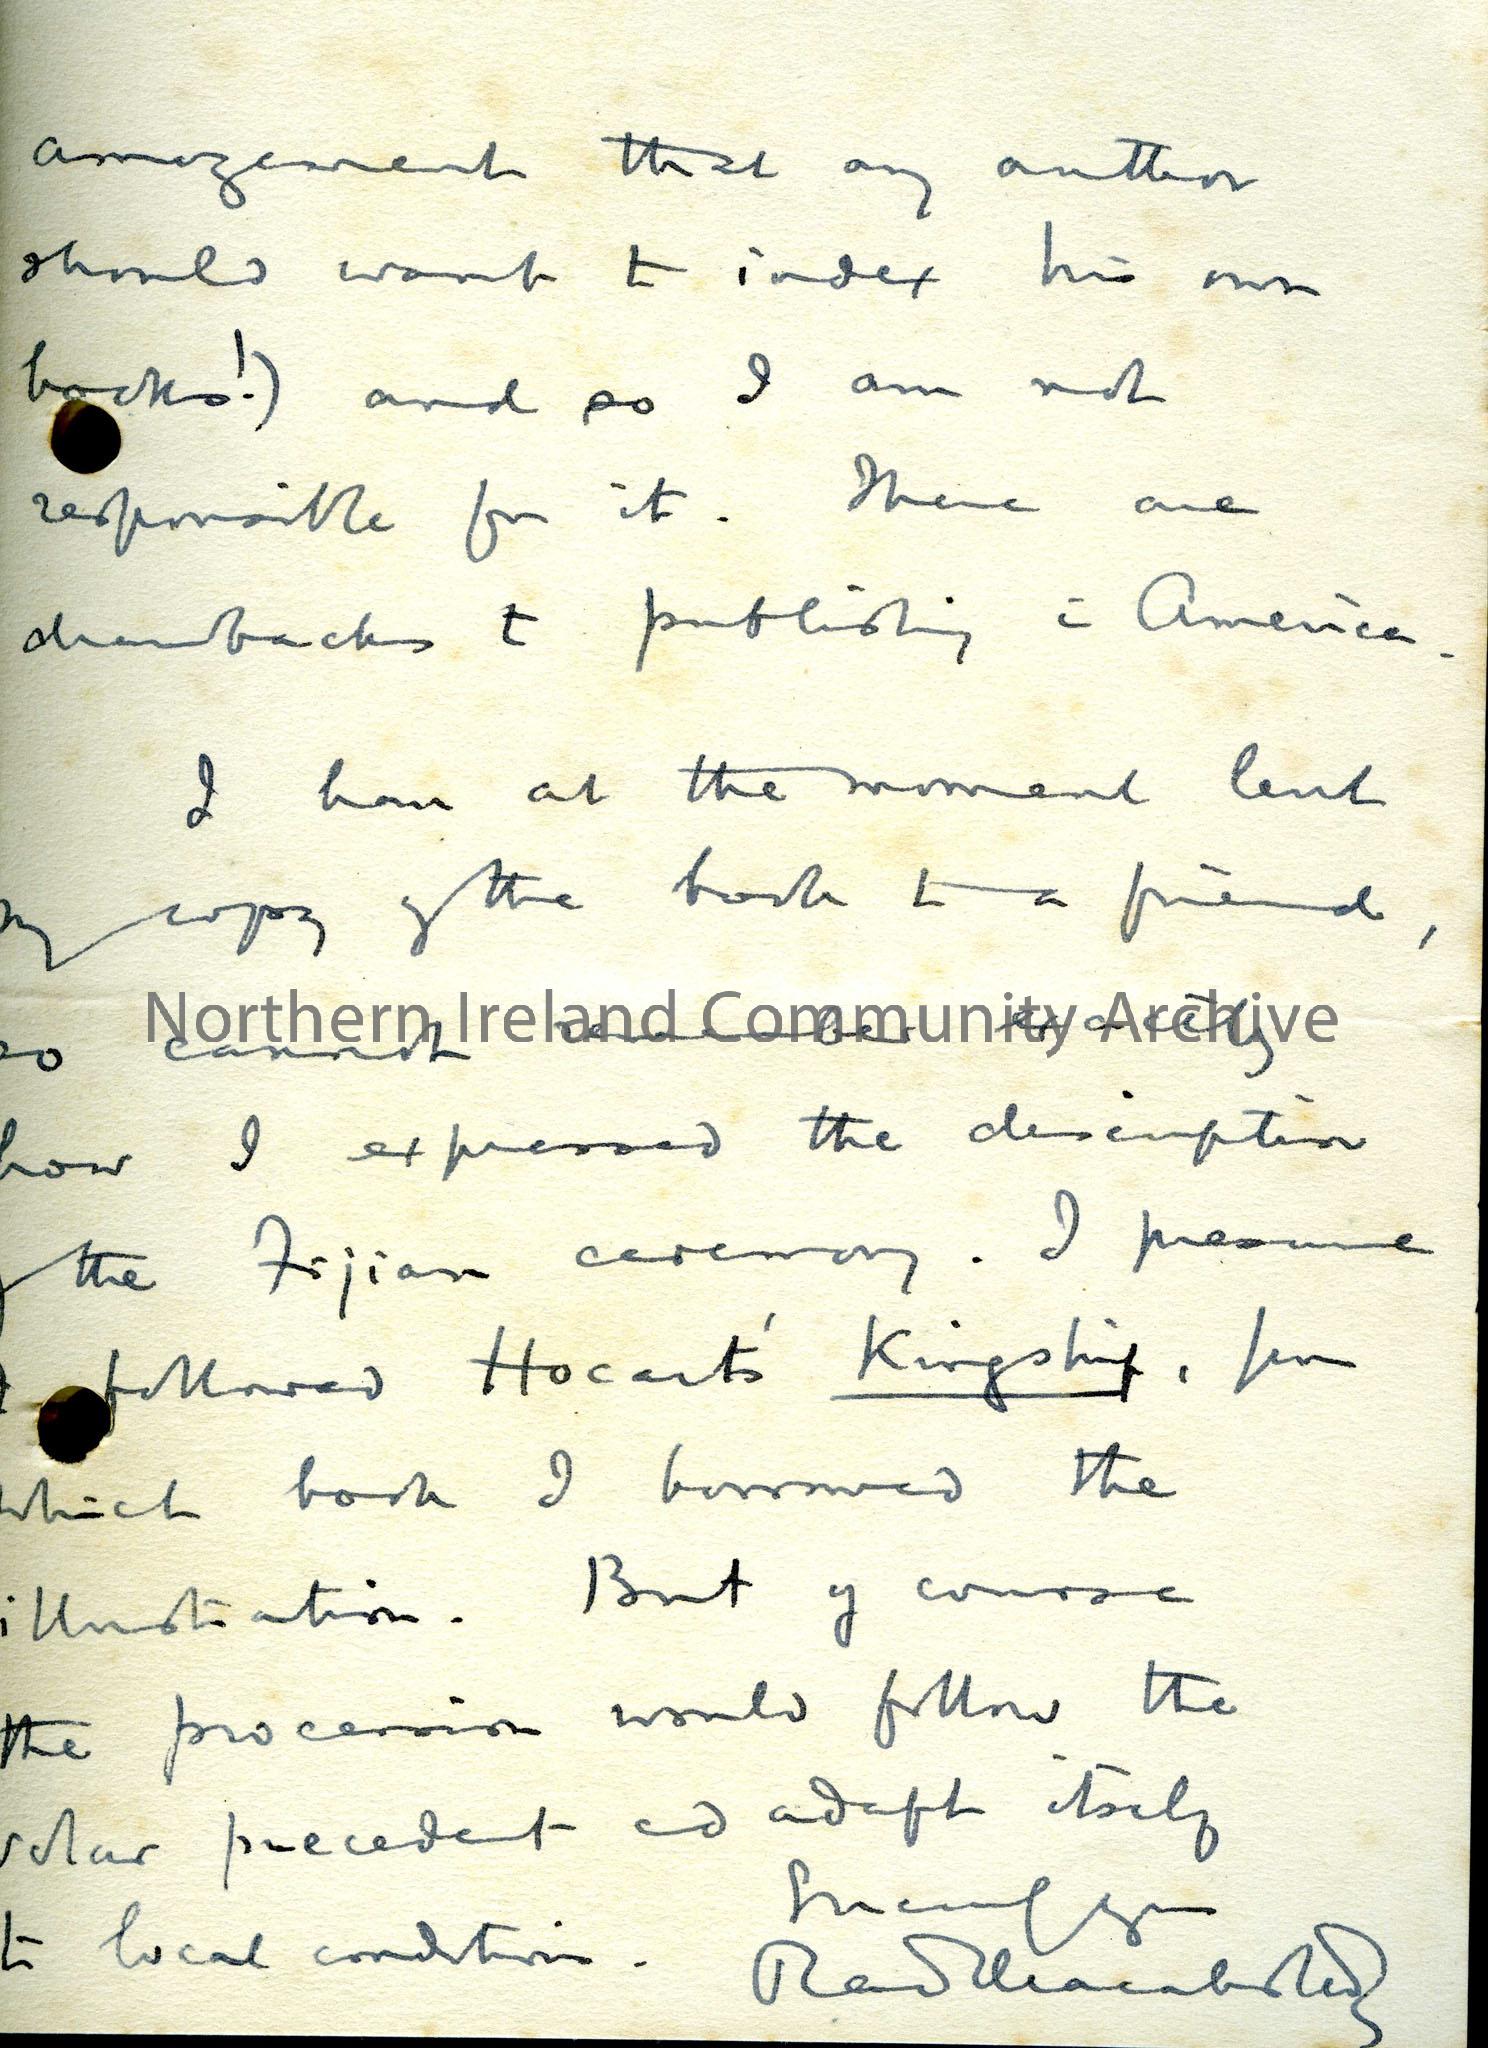 amazement that any author
should want to index his own
books!) and so I am not
responsible for it. There are
drawbacks to publishing in America.
I have at the moment lent
my copy of the book to a friend,
Northern Ireland Community Archive
so cannot remember exactly
how I expressed the description
of the Fijian ceremony. I presume
I followed Hocart's Kingship, from
which book I borrowed the
illustration. But of course
the procession would follow the
solar precedent and adapt itself
to local conditions.
Sincerely yours